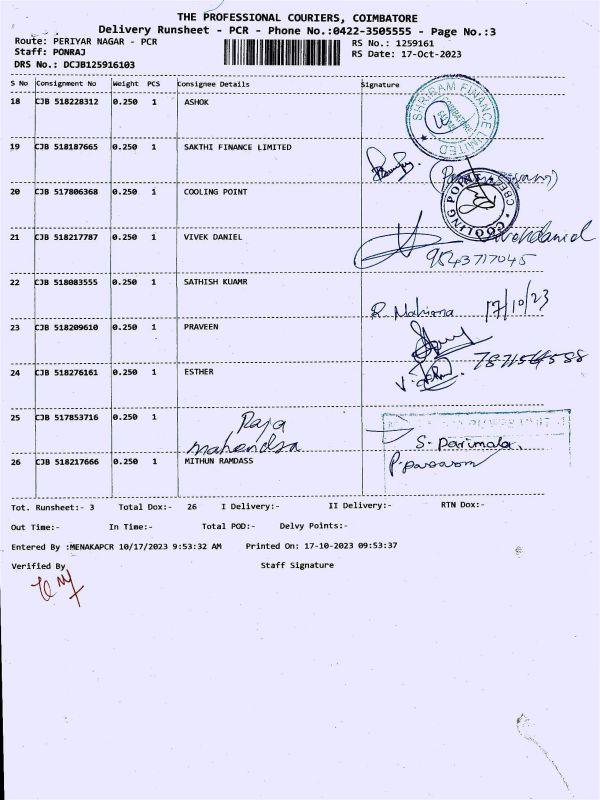 THE PROFESSIONAL COURIERS, COIMBATORE
Delivery Runsheet - PCR - Phone No.:0422-3505555 - Page No.:3
Route: PERIYAR NAGAR - PCR
RS No.: 1259161
Staff: PONRAJ
RS Date: 17-Oct-2023
DRS No.: DCJB125916103
S No Consignment No Weight PCS Consignee Details Signature
18 CJB 518228312 0.250 1 ASHOK
SHRIRAM FINANCE LIMITED
19 CJB 518187665 0.250 1 SAKTHI FINANCE LIMITED
20 CJB 517806368 0.250 1 COOLING POINT
COOLING POINT
21 CJB 518217787 0.250 1 VIVEK DANIEL
Vivekdaniel
9843717045
22 CJB 518083555 0.250 1 SATHISH KUAMR
R. Mahima 17/10/23
23 CJB 518209610 0.250 1 PRAVEEN
24 CJB 518276161 0.250 1 ESTHER
7871564588
25 CJB 517853716 0.250 1
Raja
mahendra
S. Parimala.
26 CJB 518217666 0.250 1 MITHUN RAMDASS
Tot. Runsheet:- 3 Total Dox:- 26 I Delivery:- II Delivery:- RTN Dox:-
Out Time:- In Time:- Total POD:- Delvy Points:-
Entered By :MENAKAPCR 10/17/2023 9:53:32 AM Printed On: 17-10-2023 09:53:37
Verified By Staff Signature